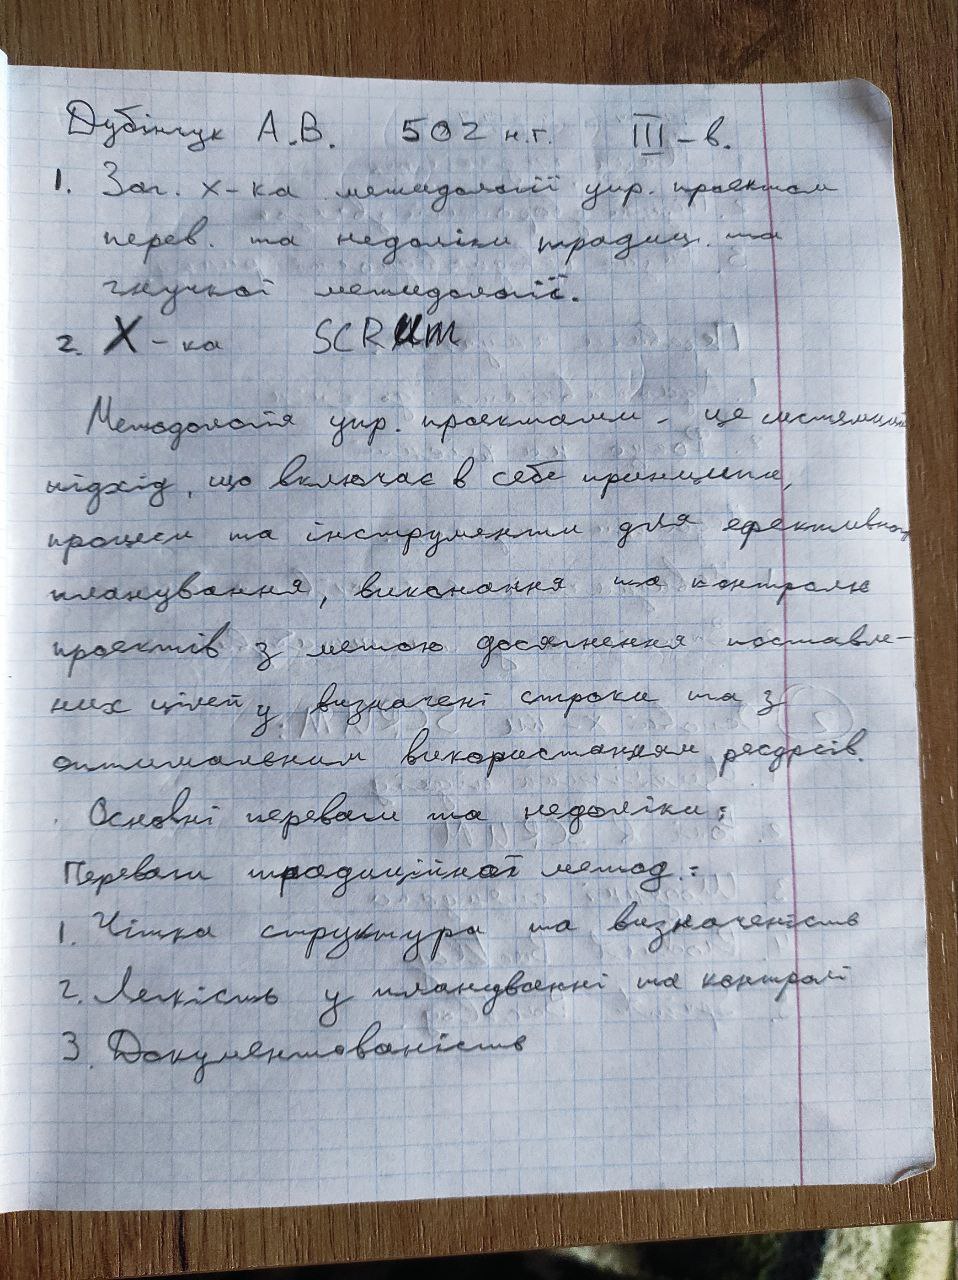 Дубінчук А.В. 502 н.г. III-в.
1. Заг. х-ка методології упр. проектам
перев. та недоліки традиц. та
гнучкої методології.
2. Х-ка SCRUM
Методологія упр. проектами - це системний
підхід, що включає в себе принципи,
процеси та інструменти для ефективного
планування, виконання та контролю
проектів з метою досягнення поставле-
них цілей у визначені строки та з
оптимальним використанням ресурсів.
Основні переваги та недоліки:
Переваги традиційної метод.:
1. Чітка структура та визначеність
2. Легкість у плануванні та контролі
3. Документованість